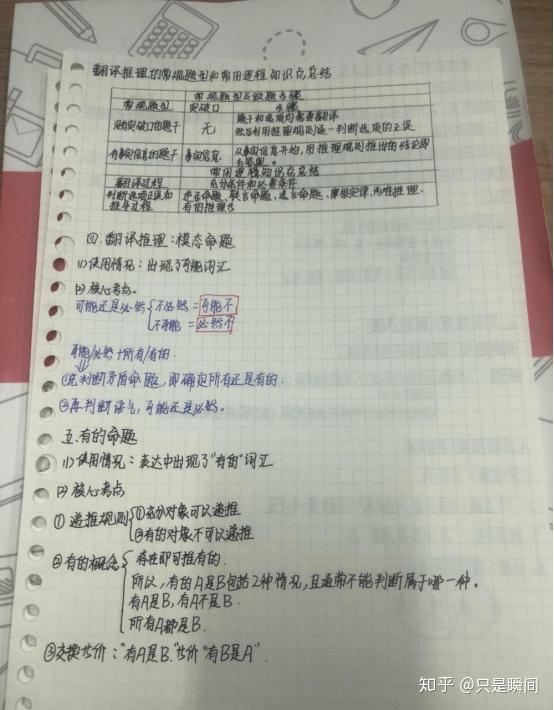 翻译推理的常规题型和常用逻辑知识点总结
常规题型及做题步骤
常规题型 突破口 步骤
没有突破口的题干 无 题干和选项均需要翻译
然后利用推理规则逐一判断选项的正误
有确定信息的题干 确定信息 从确定信息开始,用推理规则推出的结论即
为答案。
常用逻辑知识点总结
翻译过程 充分条件和必要条件
判断选项正误和
推导过程
逆否命题、联言命题、选言命题、摩根定律、两难推理、
有的推理等
四.翻译推理:模态命题
(1)使用情况:出现了可能词汇
(2)核心考点。
可能还是必然 不必然=可能不
不可能=必然不
可能/必然+所有/有的.
①先判断矛盾命题,即确定所有还是有的.
②再判断语气,可能还是必然。
五.有的命题
(1)使用情况:表达中出现了"有的"词汇
(2)核心考点
①递推规则 ①充分对象可以递推
②有的对象不可以递推
②有的概念 存在即可推有的.
所以,有的A是B包括2种情况,且通常不能判断属于哪一种。
有A是B,有A不是B.
所有A都是B.
③交换等价:"有A是B."等价"有B是A".
知乎 @只是瞬间